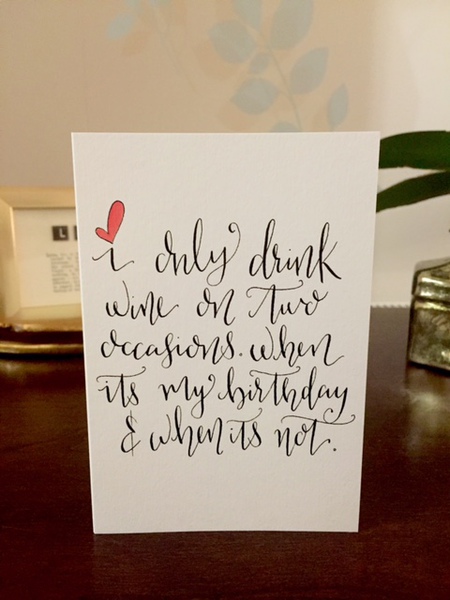 i only drink
wine on two
occasions. when
its my birthday
& when its not.